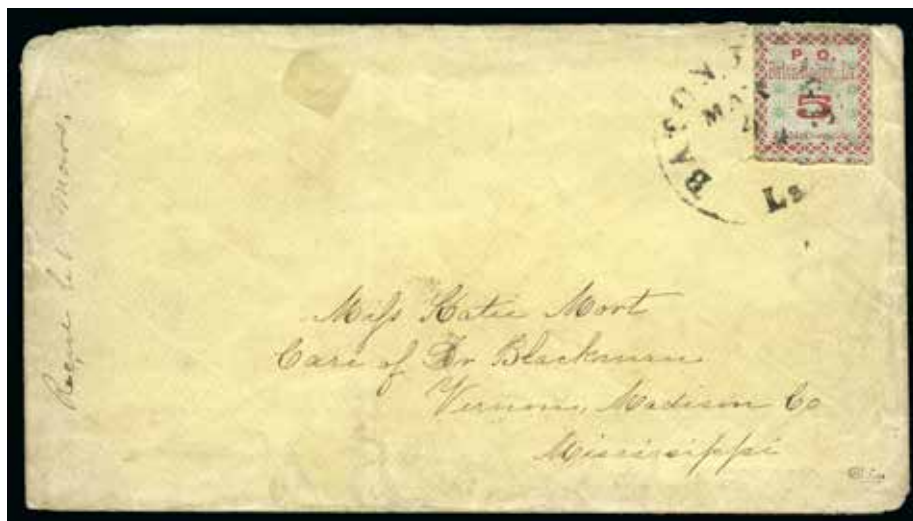 P. O.
Baton Rouge, La.
5
BATON
La
Miss Katie Mort
Care of Dr Blackman
Vernon, Madison Co
Mississippi